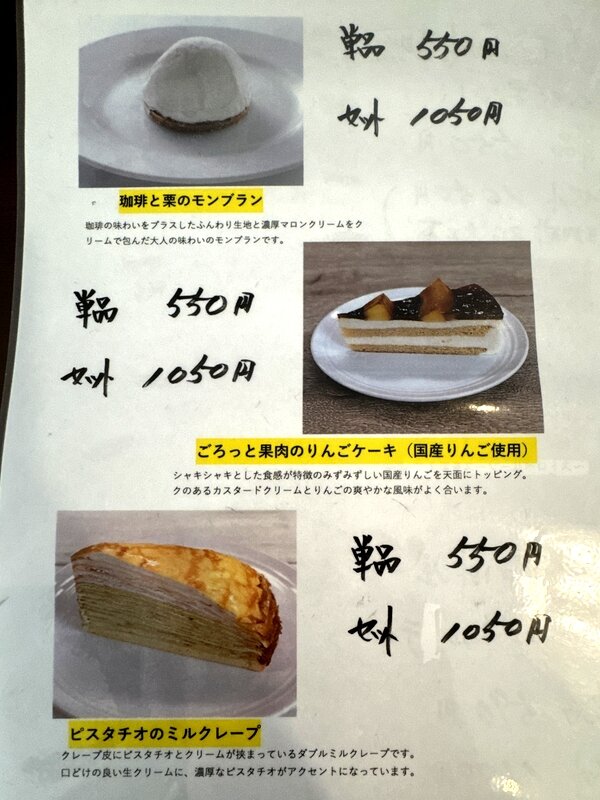 単品 550円
セット 1050円
珈琲と栗のモンブラン
珈琲の味わいをプラスしたふんわり生地と濃厚マロンクリームをク
リームで包んだ大人の味わいのモンブランです。
単品 550円
セット 1050円
ごろっと果肉のりんごケーキ（国産りんご使用）
シャキシャキとした食感が特徴のみずみずしい国産りんごを天面にトッピング。
クのあるカスタードクリームとりんごの爽やかな風味がよく合います。
単品 550円
セット 1050円
ピスタチオのミルクレープ
クレープ皮にピスタチオとクリームが挟まっているダブルミルクレープです。
口どけの良い生クリームに、濃厚なピスタチオがアクセントになっています。